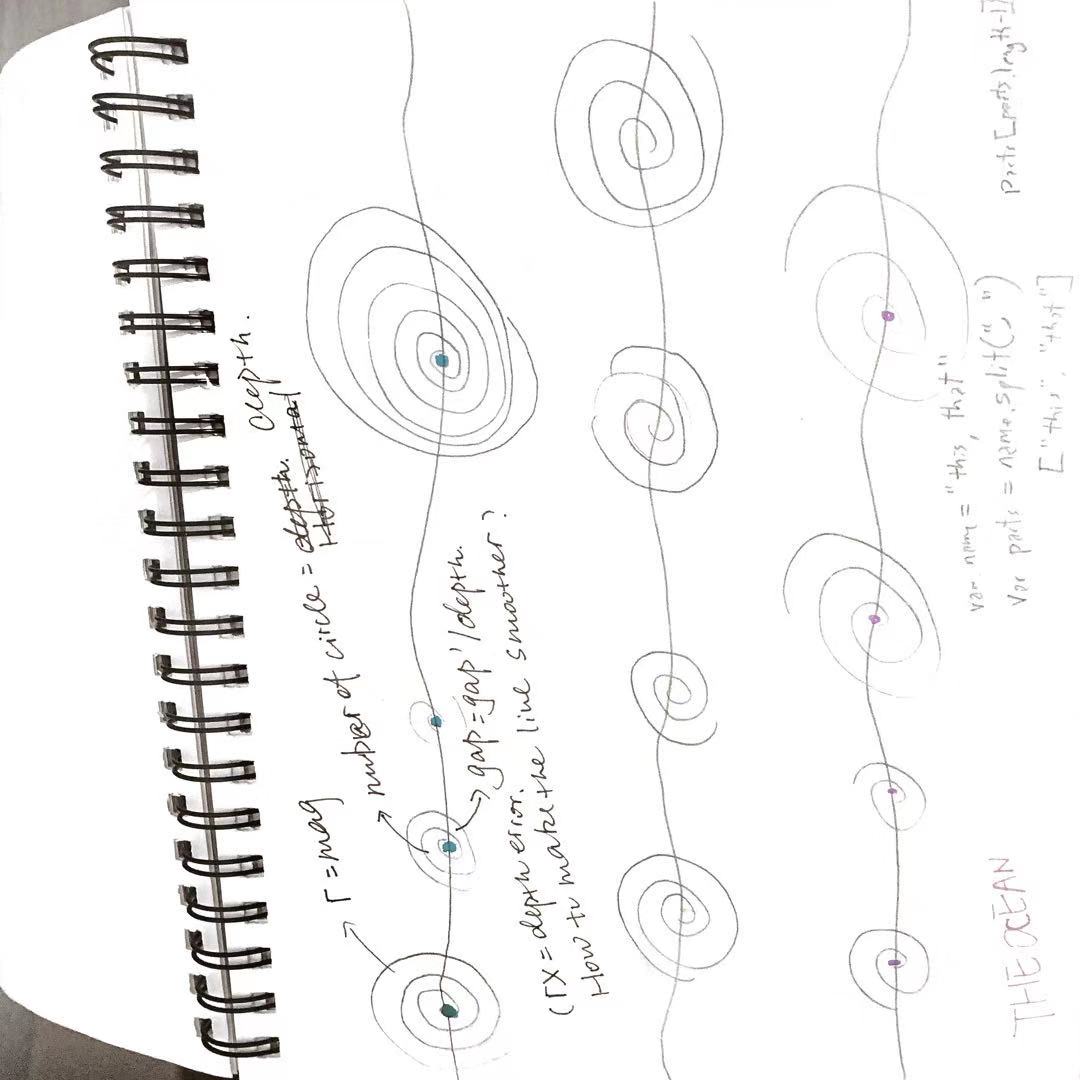 r=mag
nubar of circle = depth. depth.
Horizontal
gap=gap'/depth.
(rx = depth error.
How to make the line smoother?
var name = "this, that"
Var parts = name.split(", ")
["this", "that"]
parts[parts.length-1]
THE OCEAN